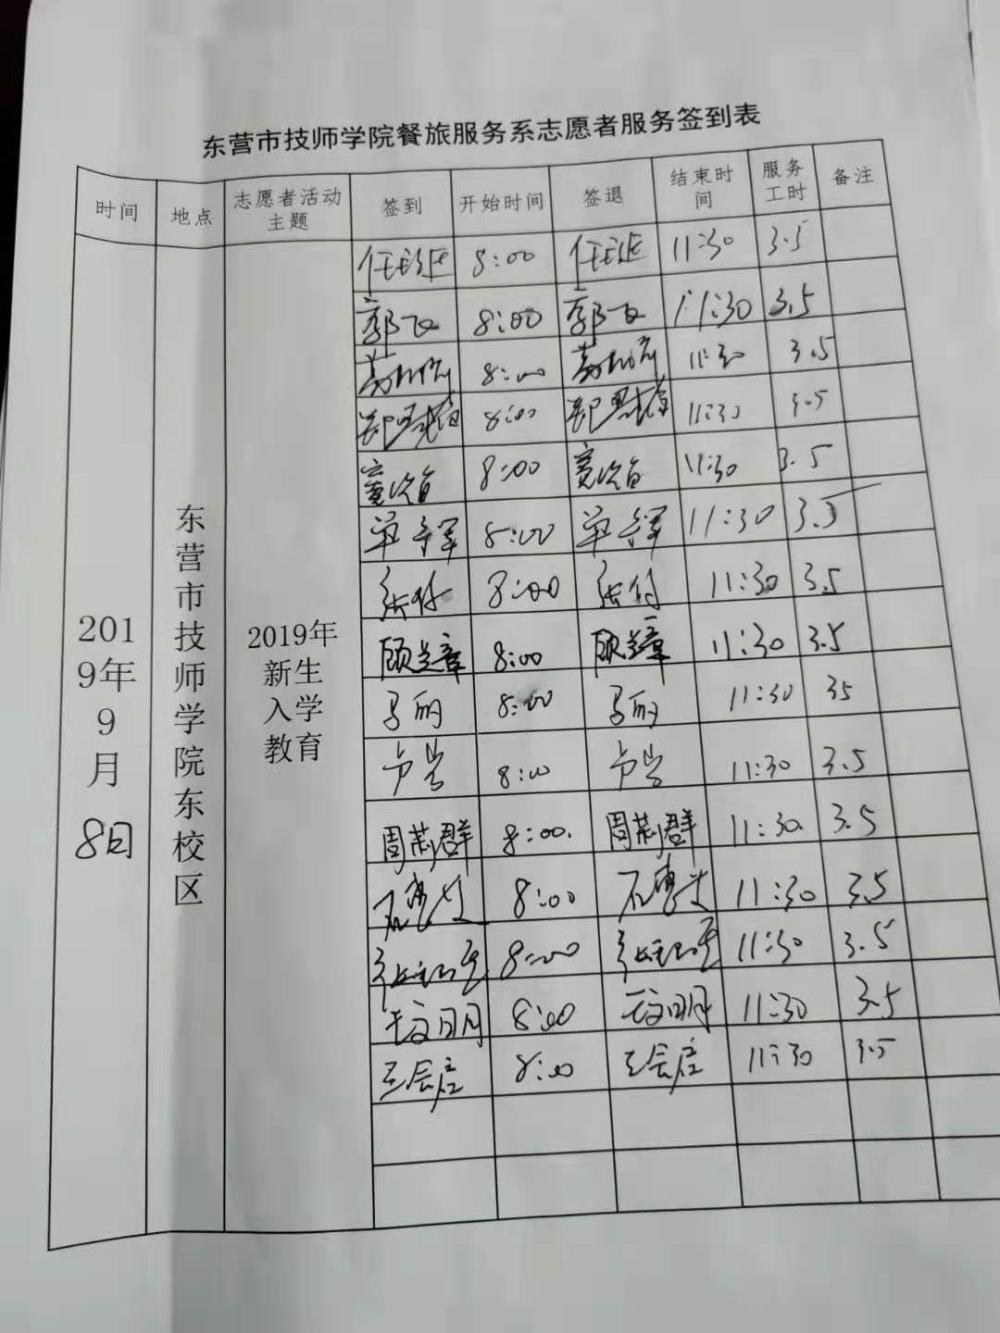 东营市技师学院餐旅服务系志愿者服务签到表
时间 地点 志愿者活动主题 签到 开始时间 签退 结束时间 服务工时 备注
2019年9月8日 东营市技师学院东校区 2019年新生入学教育
8:00 11:30 3.5
郭飞 8:00 郭飞 11:30 3.5
8:00 11:30 3.5
8:00 11:30 3.5
8:00 11:30 3.5
单 8:00 单 11:30 3.5
张 8:00 张 11:30 3.5
顾兰章 8:00 顾兰章 11:30 3.5
马丽 8:00 马丽 11:30 35
8:00 11:30 3.5
周荊群 8:00. 周荊群 11:30 3.5
石 8:00 石 11:30 3.5
张 8:00 张 11:30 3.5
明月 8:00 明月 11:30 3.5
王辰启 8:00 王辰启 11:30 3.5